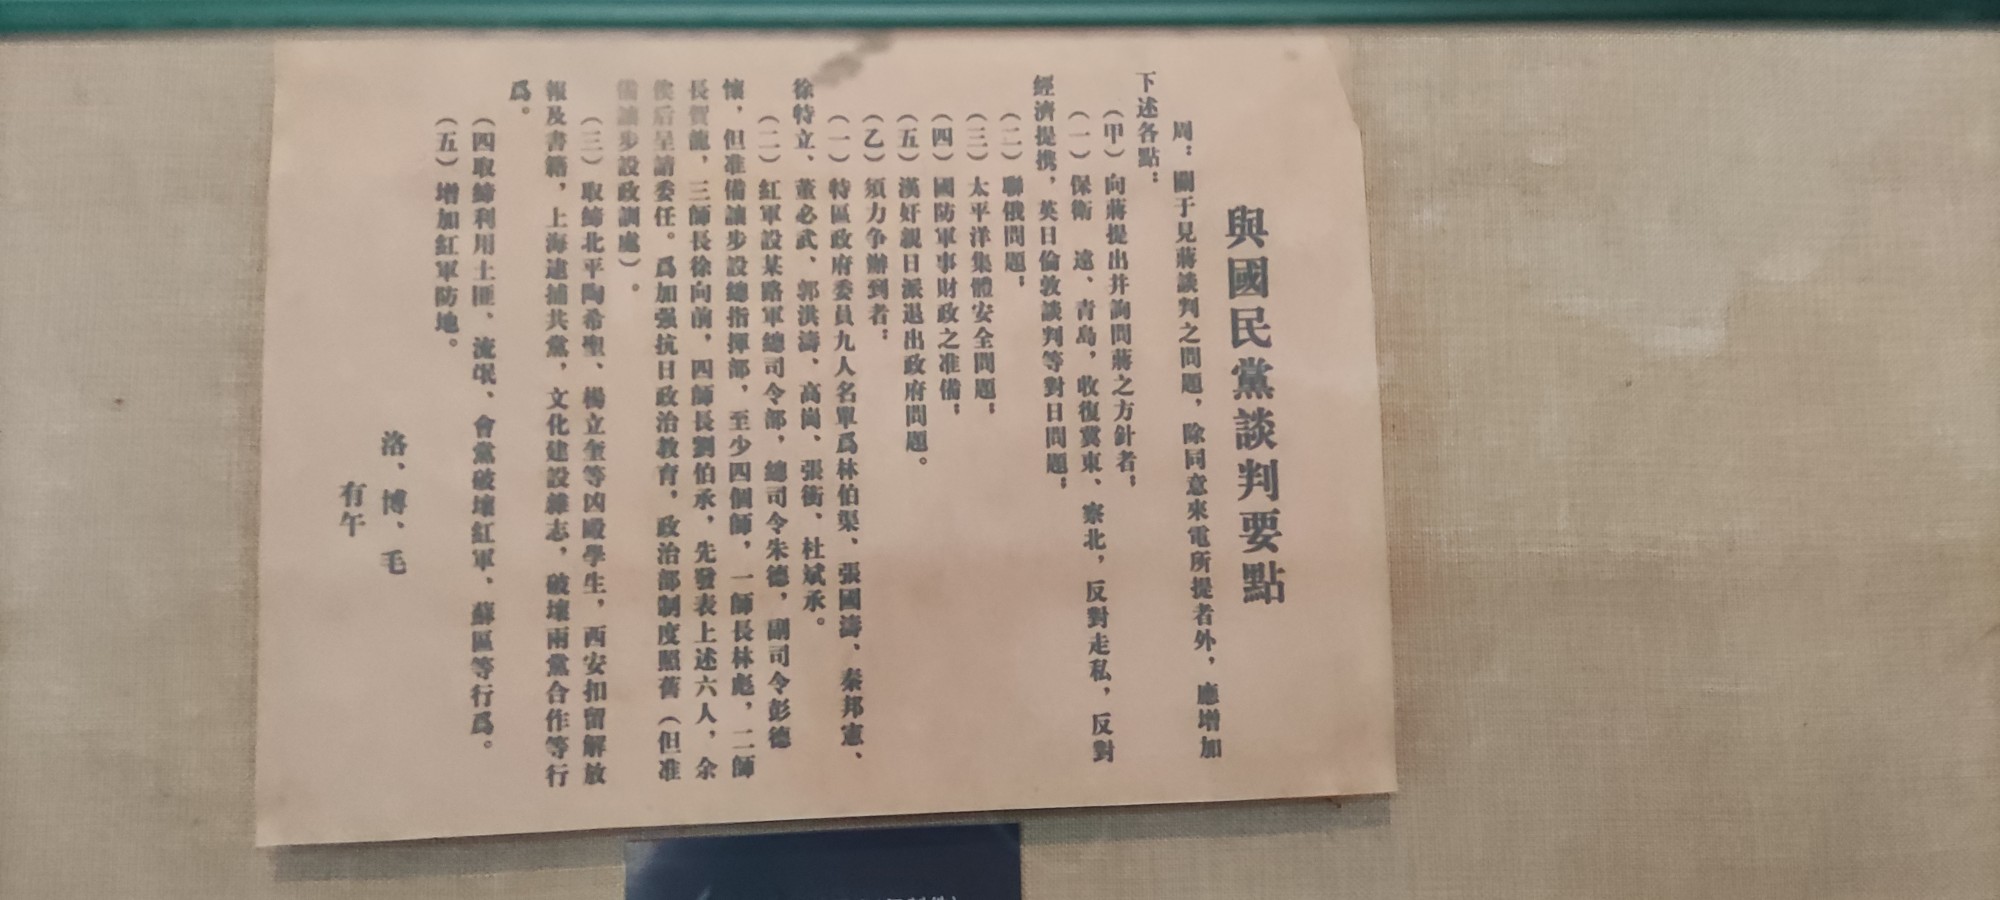 與國民黨談判要點
周：關于見蔣談判之問題，除同意來電所提者外，應增加
下述各點：
（甲）向蔣提出并詢問蔣之方針者：
（一）保衛　遠、青島，收復冀東、察北，反對走私，反對
經濟提携，英日倫敦談判等對日問題；
（二）聯俄問題；
（三）太平洋集體安全問題；
（四）國防軍事財政之准備；
（五）漢奸親日派退出政府問題。
（乙）須力争辦到者：
（一）特區政府委員九人名單爲林伯渠、張國濤、秦邦憲、
徐特立、董必武、郭洪濤、高崗、張衝、杜斌承。
（二）紅軍設某路軍總司令部，總司令朱德，副司令彭德
懷，但准備讓步設總指揮部，至少四個師，一師長林彪，二師
長賀龍，三師長徐向前，四師長劉伯承，先發表上述六人，余
俟后呈請委任。爲加强抗日政治教育，政治部制度照舊（但准
備讓步設政訓處）。
（三）取締北平陶希聖、楊立奎等凶毆學生，西安扣留解放
報及書籍，上海逮捕共黨，文化建設雜志，破壞兩黨合作等行
爲。
（四取締利用土匪、流氓、會黨破壞紅軍、蘇區等行爲。
（五）增加紅軍防地。
洛、博、毛
有午